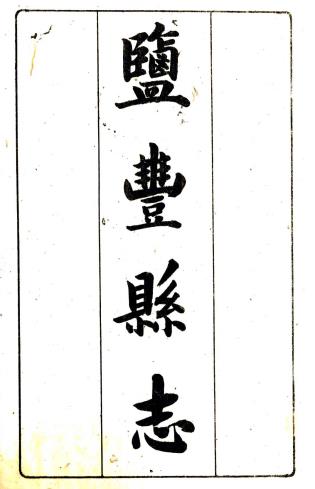 鹽豐縣志